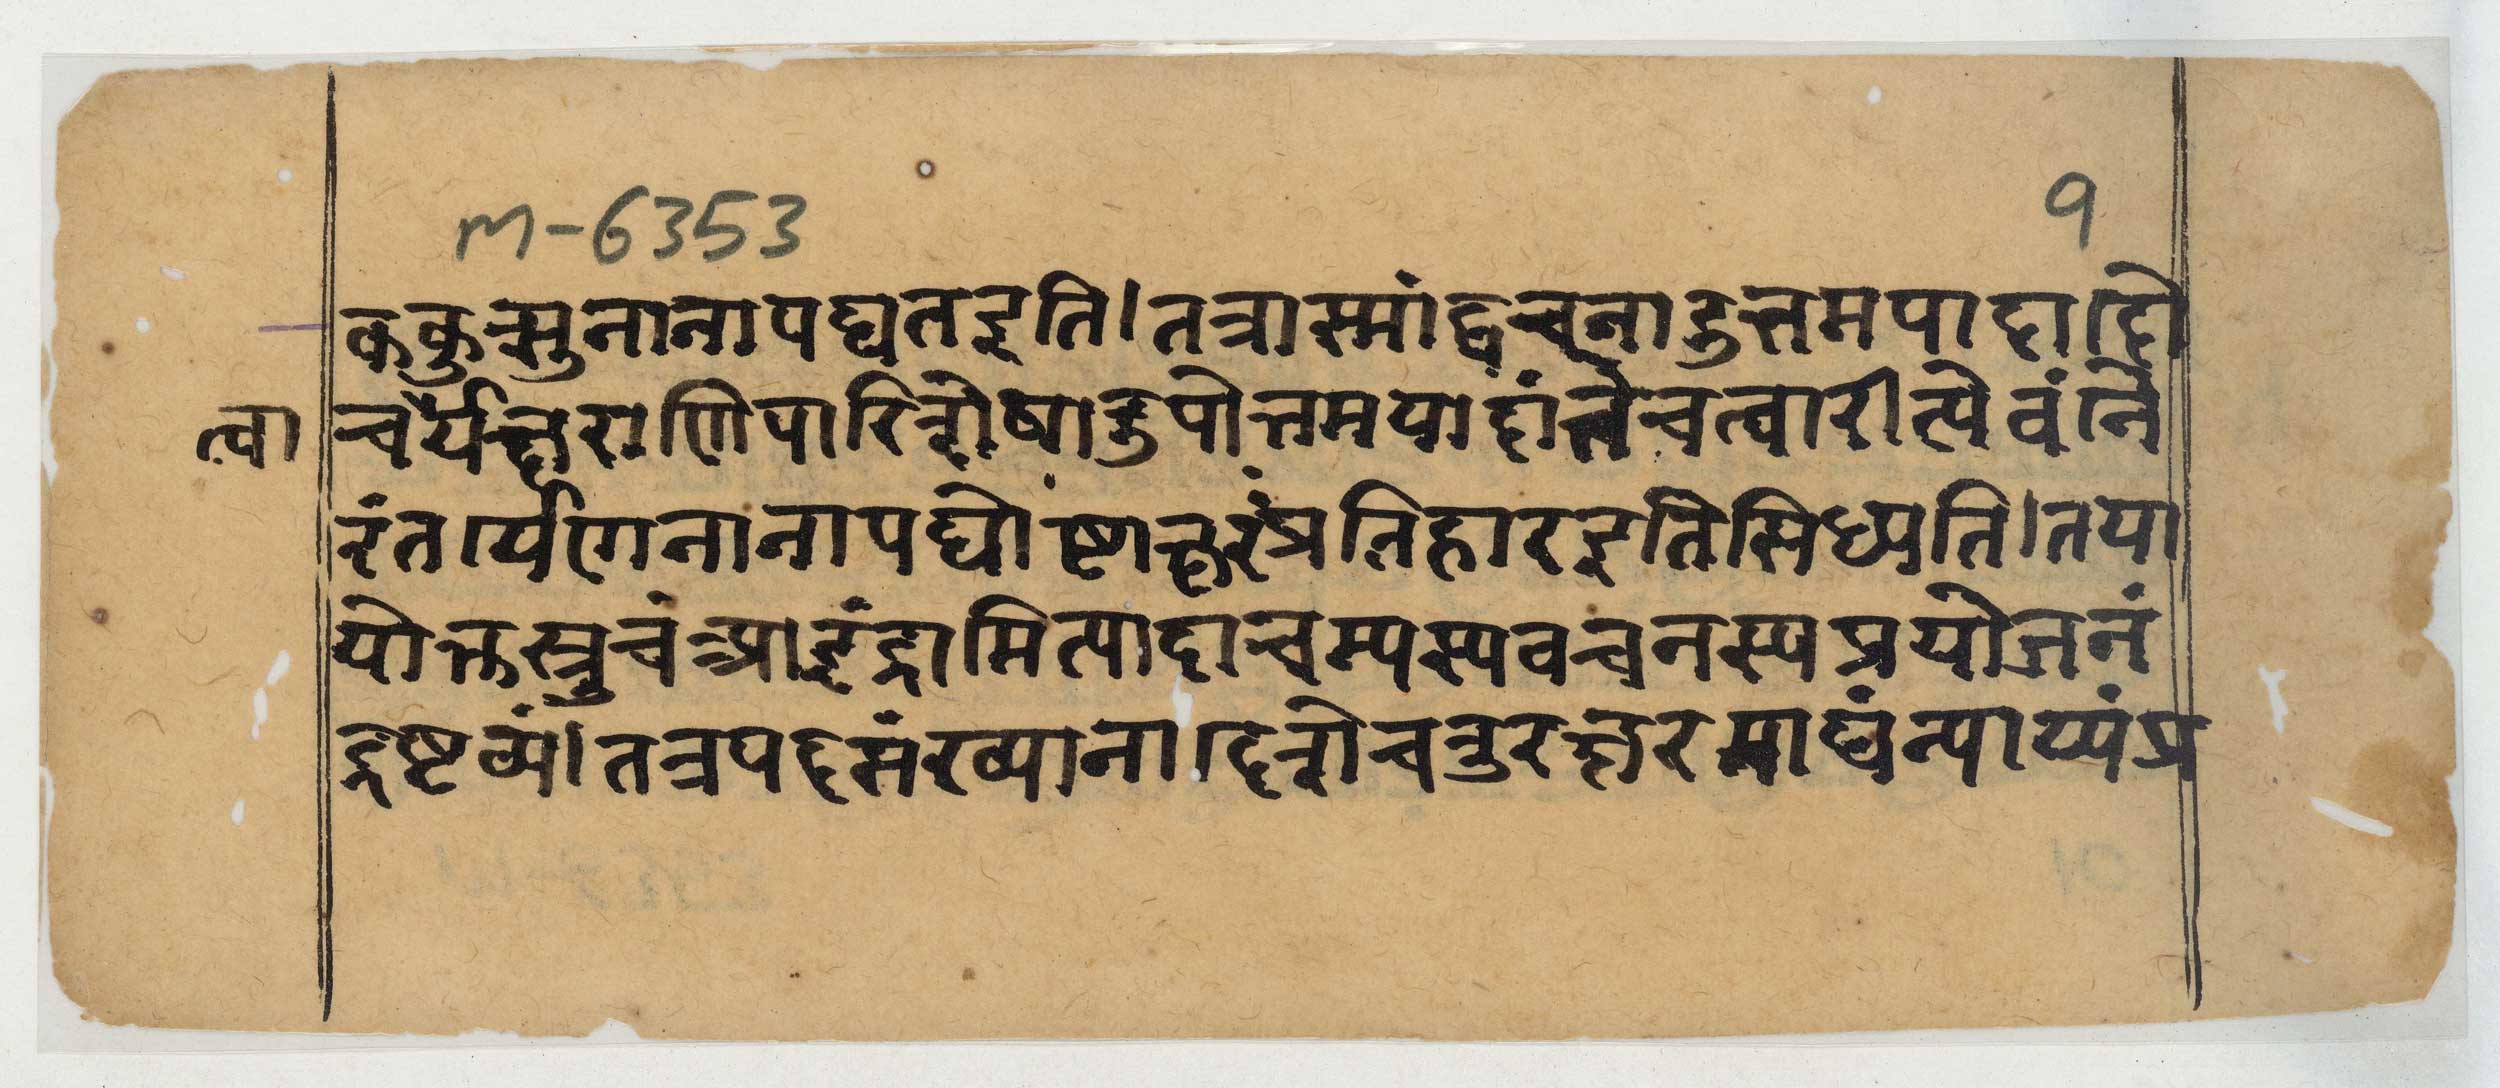 m-6353
१
ककुत्सुनानापद्यतइति।तत्रास्मांद्वचनादुत्तमपादादौ
त्वा
चर्यक्षराणिपारिशेषादुपोत्तमपादांतेचत्वारीत्येवंनि
रंतर्येणनानापद्योष्टाक्षरंप्रतिहारइतिसिध्यति।तथा
योक्तस्त्रुचंप्राइंद्रामित्याद्यचम्पस्यवचनस्यप्रयोजनं
द्रष्टव्यं।तत्रपदसंख्याना।दितोचतुरक्षरमाद्यंन्याय्यंप्र